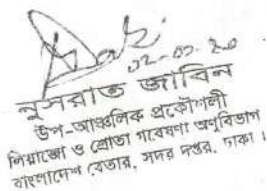 ০২-০৭-২০
নুসরাত জাবিন
উপ-আঞ্চলিক প্রকৌশলী
লিয়াজোঁ ও শ্রোতা গবেষণা অণুবিভাগ
বাংলাদেশ বেতার, সদর দপ্তর, ঢাকা।